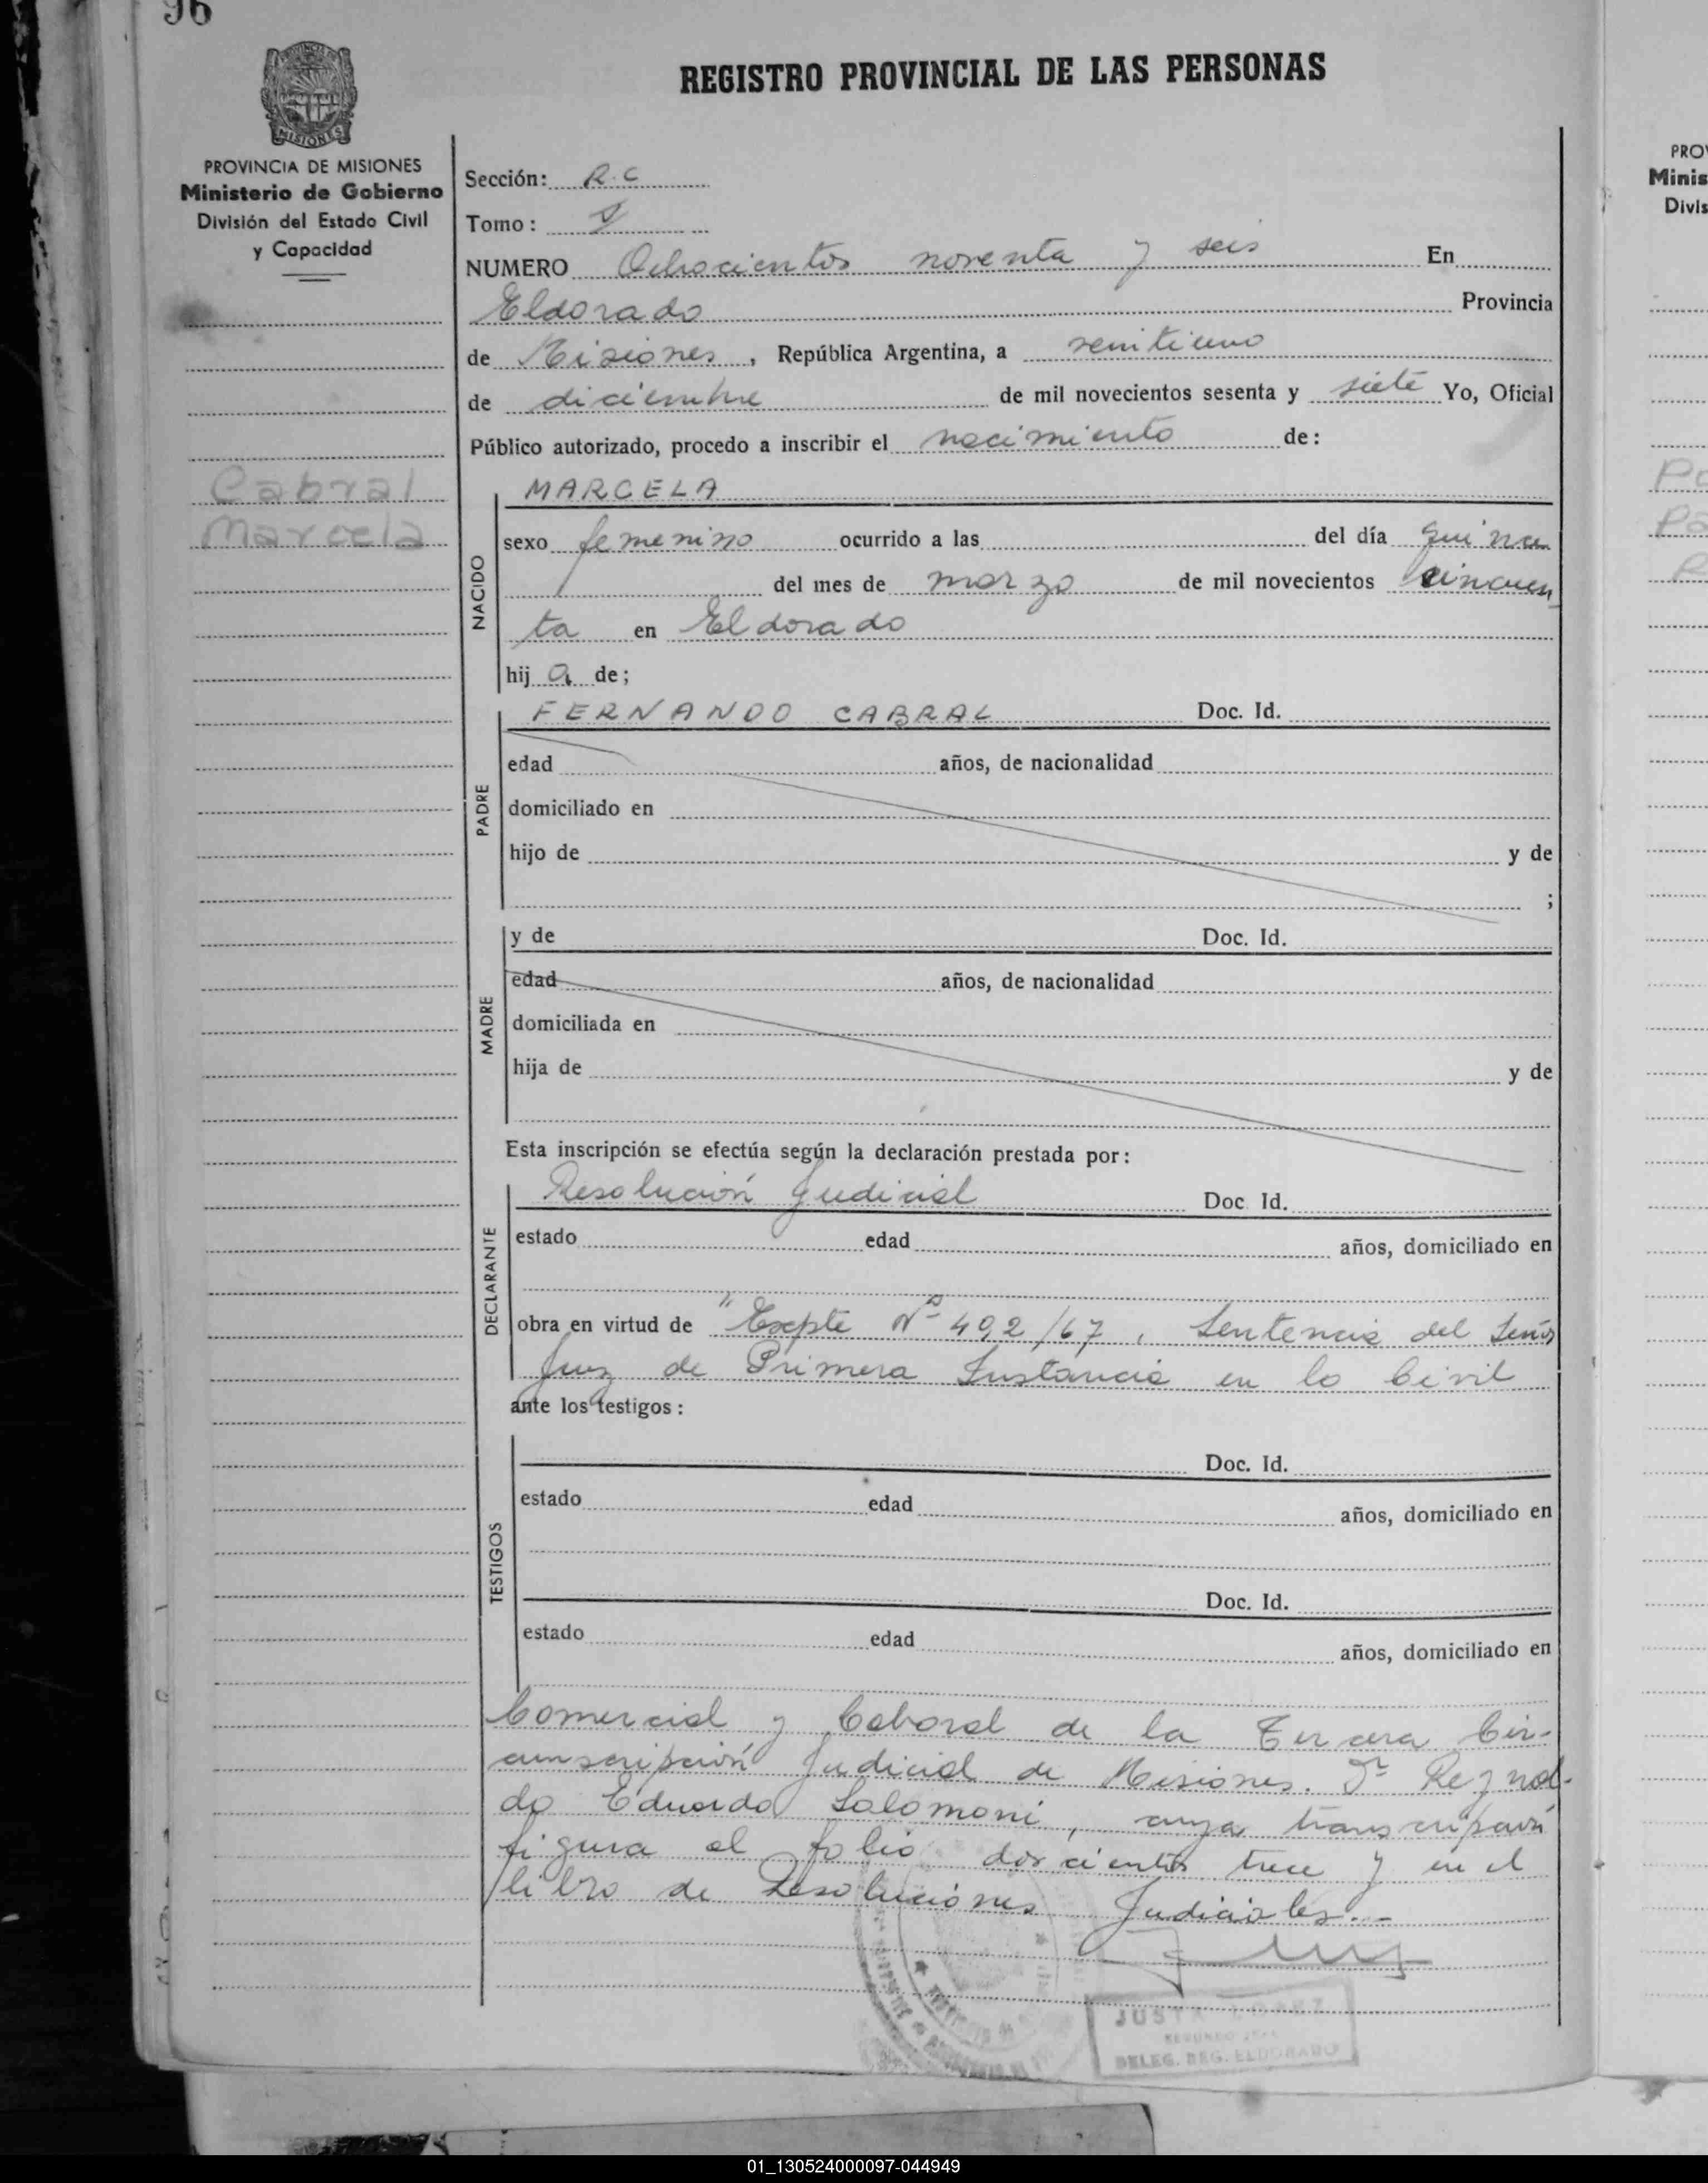 96
REGISTRO PROVINCIAL DE LAS PERSONAS
MISIONES
PROVINCIA DE MISIONES
Ministerio de Gobierno
División del Estado Civil
y Capacidad
Cabral
Marcela
Sección: R.C
Tomo:
NUMERO Ochocientos noventa y seis En
Eldorado Provincia
de Misiones, República Argentina, a veintiuno
de diciembre de mil novecientos sesenta y siete Yo, Oficial
Público autorizado, procedo a inscribir el nacimiento de:
NACIDO
MARCELA
sexo femenino ocurrido a las del día quince
del mes de marzo de mil novecientos cincuen
ta en Eldorado
hij a de;
PADRE
FERNANDO CABRAL Doc. Id.
edad años, de nacionalidad
domiciliado en
hijo de y de
;
MADRE
y de Doc. Id.
edad años, de nacionalidad
domiciliada en
hija de y de
Esta inscripción se efectúa según la declaración prestada por:
DECLARANTE
Resolución Judicial Doc. Id.
estado edad años, domiciliado en
obra en virtud de "Expte Nº 492/67, Sentencia del Señor
Juez de Primera Instancia en lo Civil
ante los testigos:
TESTIGOS
Doc. Id.
estado edad años, domiciliado en
Doc. Id.
estado edad años, domiciliado en
Comercial y Laboral de la Tercera Cir-
cunscripción Judicial de Misiones. Dr Reynal-
do Eduardo Salomoni, cuya transcripción
figura al folio doscientos trece y en el
libro de Resoluciones Judiciales.-
DELEG. REG. ELDORADO
PRO
Minis
Divis
01_130524000097-044949